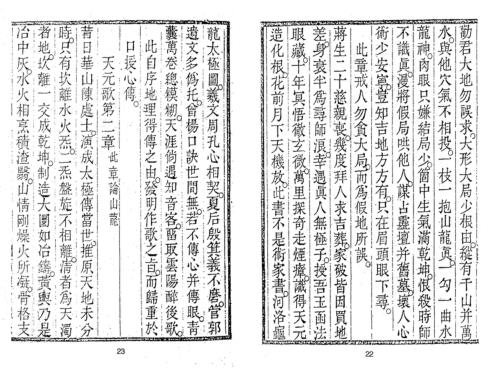 勸君大地勿誤求。大形大局少根由。縱有千山并萬
水。與他穴氣不相投。一枝一抱山龍真。一勾一曲水
龍神。肉眼只嫌結局少。箇中生氣滿乾坤。恨殺時師
不識眞。漫將假局哄他人。謀占靈壇并舊墓。壞人心
術少安寧。豈知吉地方方有。只在眉頭眼下尋。
此章戒人勿貪大局。而爲假地所誤。
蔣生二十慈親喪。幾度拜人求吉葬。家破皆因買地
差。身衰半爲尋師浪。幸遇眞人無極子。授吾玉函法
眼藏。十年眞悟徹玄微。萬里探奇走煙瘴。識得天元
造化根。花前月下天機放。此書不是術家書。河洛龜
22
龍太極圖。羲文周孔心相契。夏后殷箕義不磨。管郭
遺文多僞托。曾楊口訣世間無。若不傳心并傳眼。青
囊萬卷總模糊。天涯倘遇知音客。留取雲陽醉後歌。
此自序地理得傳之由。發明作歌之旨。而歸重於
口授心傳。
天元歌第二章 此章論山龍
昔日華山陳處士。演成太極傳當世。推原天地未分
時。只有坎離水火炁。二炁盤旋不相離。清者爲天濁
者地。坎離一交成乾坤。制造大圖如冶鑄。黃輿乃是
冶中灰。水火相烹積渣翳。山情剛燥火所凝。骨格支
23